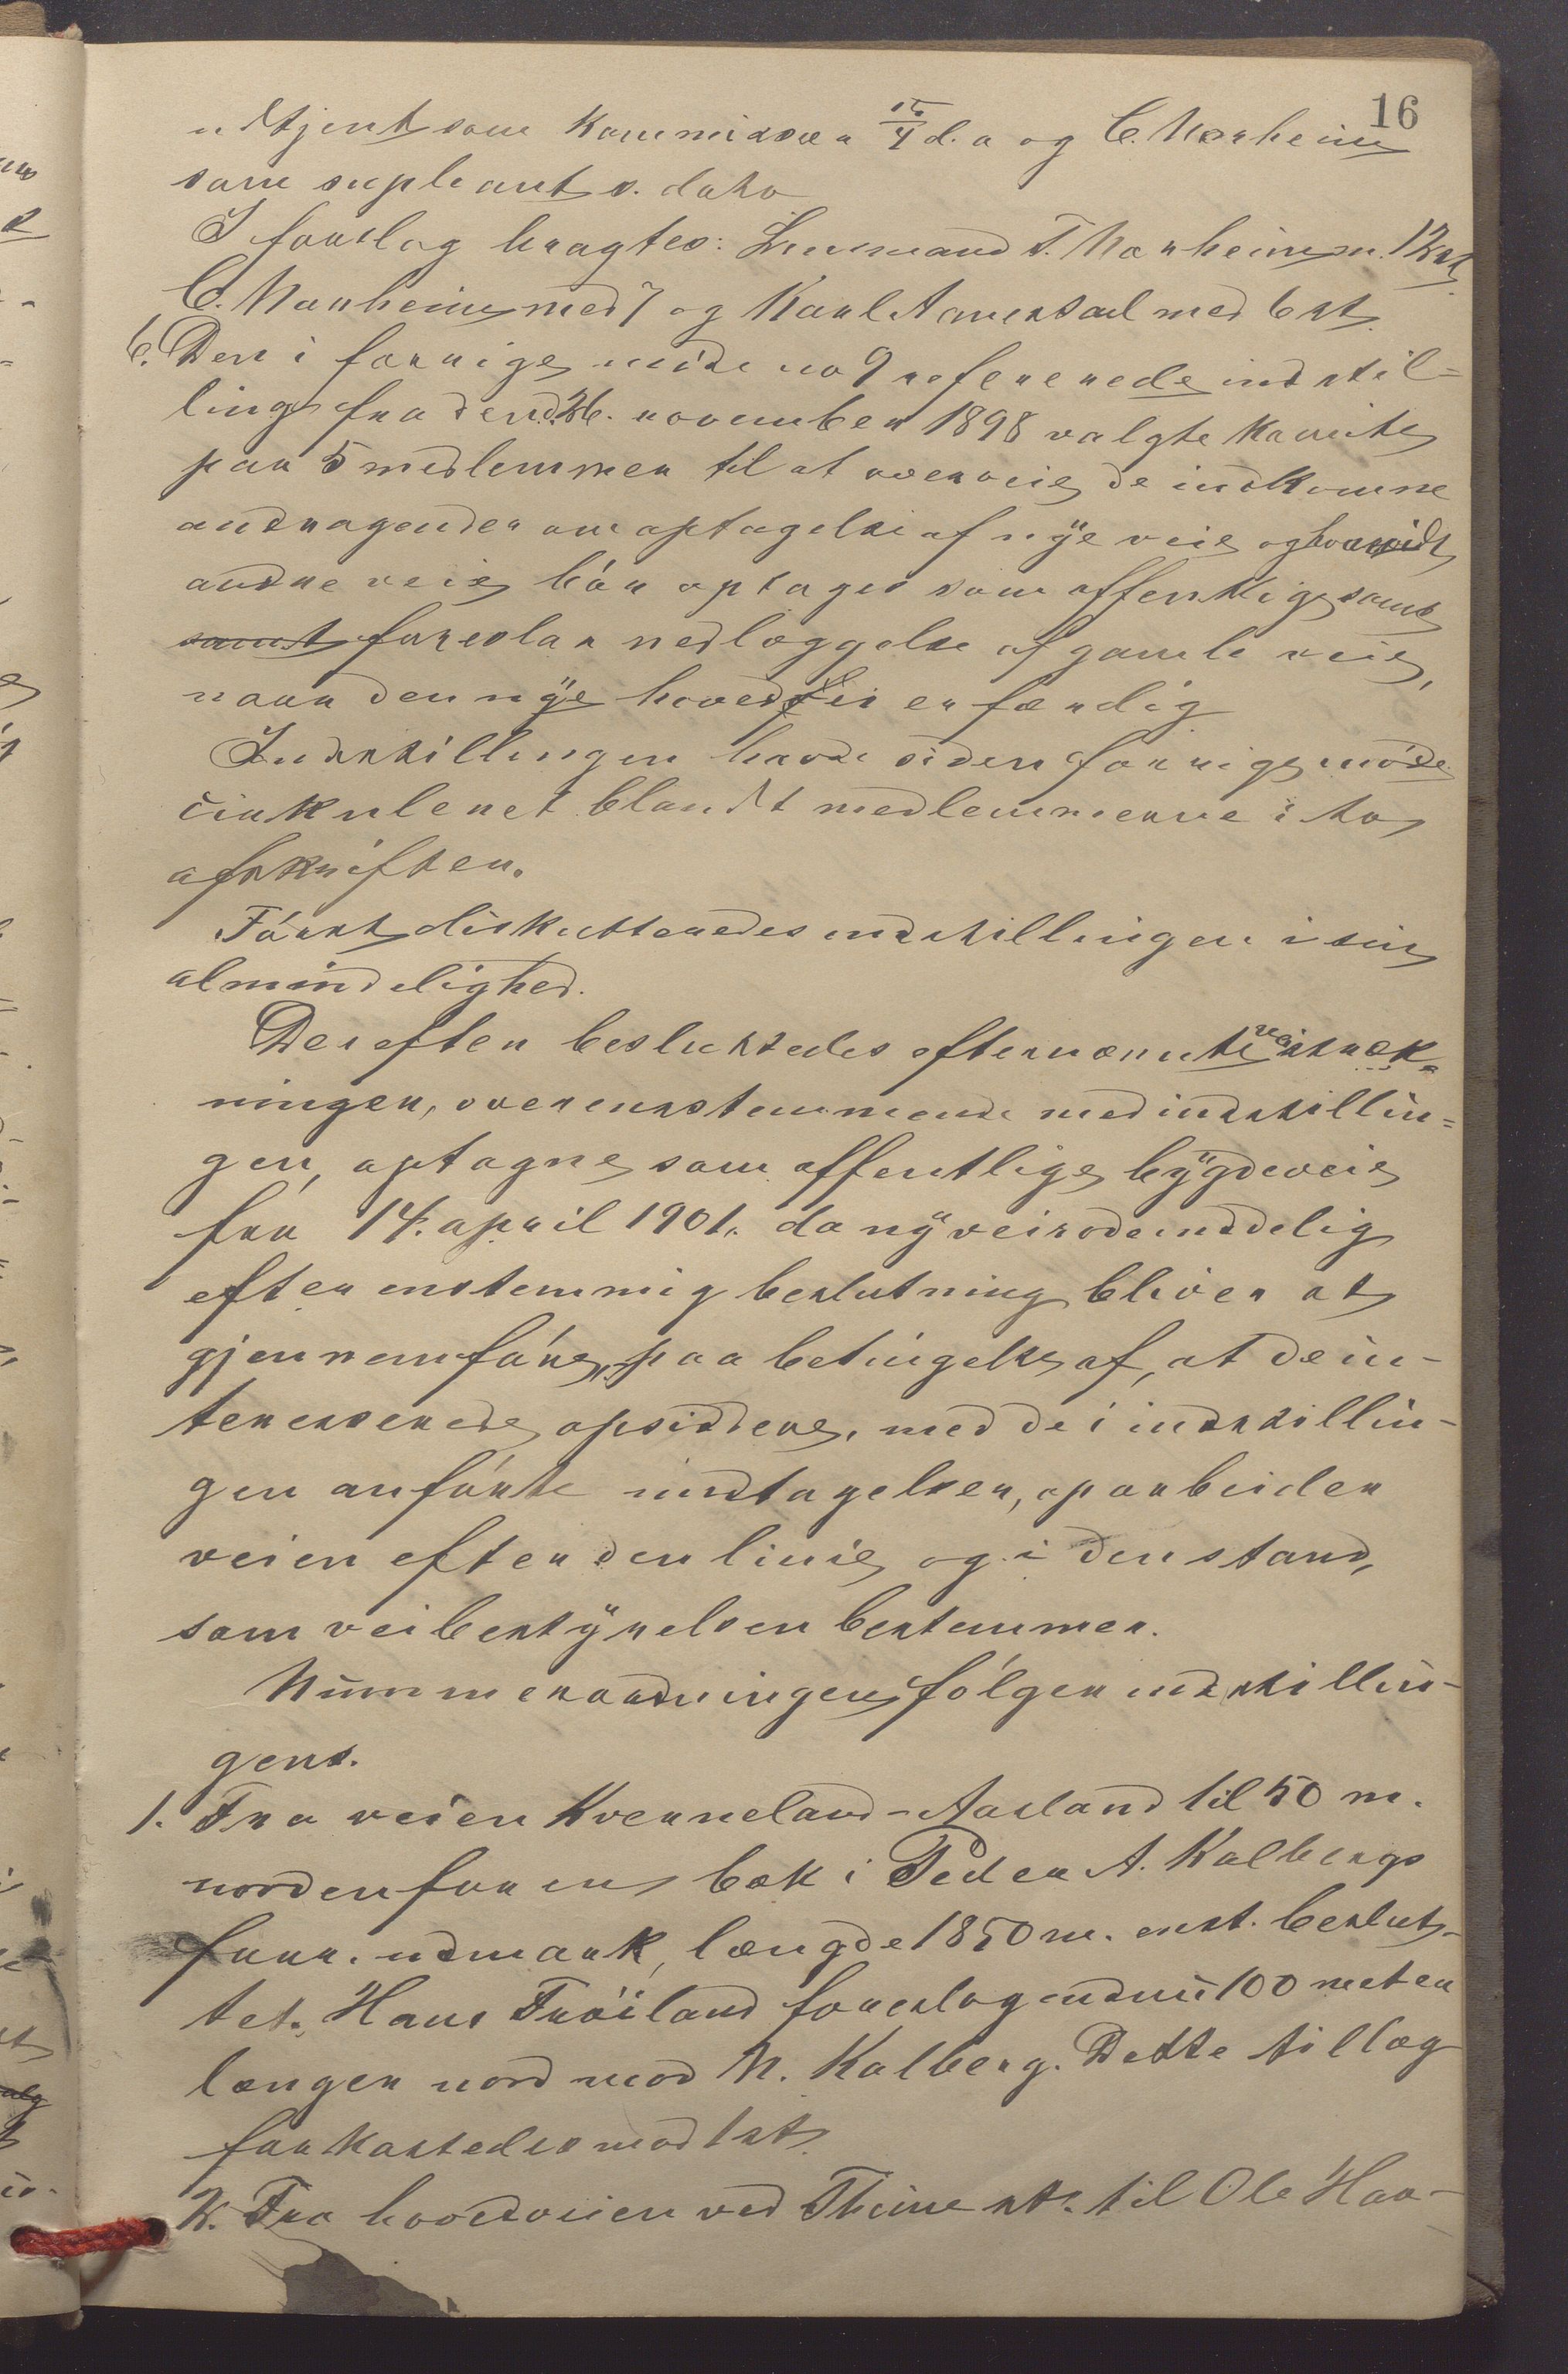 16
udtjent som Kommissær 15/4 d. a og C. Norheim
som supleant s. dato
I forslag bragtes: Lensmand T. Norheim m. 12 st,
C. Norheim med 7 og Karl Aarrestad med 6 st.
6. Den i forrige møde no 9 refererede indstil-
ling fra den d. 26. november 1898 valgte Komite
paa 5 medlemmer til at overveie de indkomne
andragender om optagelse af nye veie og hvorvidt
andre veie bør optages som offentlige samt
samt foreslaa nedlæggelse af gamle veie,
naar den nye hovedvei er færdig
Indstillingen havde siden forrige møde
cirkuleret blandt medlemmerne i to
afskrifter.
Først diskutteredes indstillingen i sin
almindelighed.
Derefter besluttedes efternævnte veistræk-
ninger, overenstemmende med indstillin-
gen, optagne som offentlige bygdeveie
fra 14. april 1901. da ny veirodeinddeling
efter enstemmig beslutning bliver at
gjennemføre, paa betingelse af, at de in-
teresserede opsiddere, med de i indstillin-
gen anførte undtagelser, oparbeider
veien efter den linie og i den stand,
som veibestyrelsen bestemmer.
Nummerordningen følger indstillin-
gens.
1. Fra veien Kverneland-Aasland til 50 m.
nordenfor en bæk i Peder A. Kalbergs
forr. udmark, længde 1850 m. enst. beslut-
tet. Hans Frøiland foreslog endnu 100 meter
længer nord mod N. Kalberg. Dette tillæg
forkastedes mod 1 st.
2. Fra hovedveien ved Thime st. til Ole Haa-